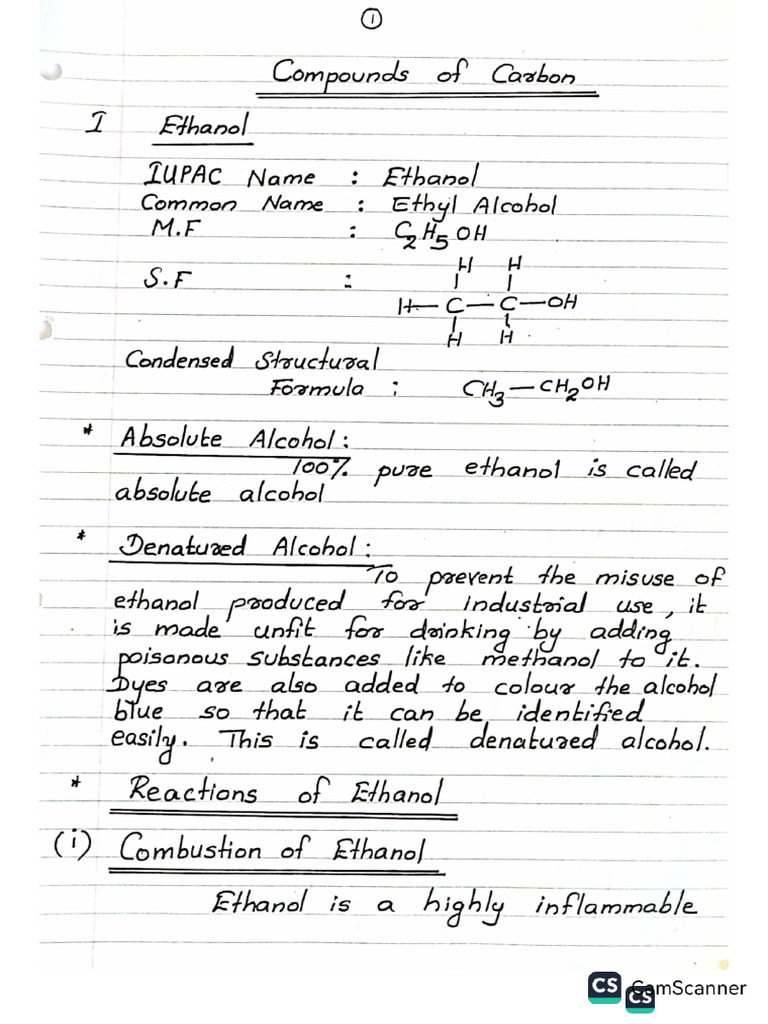 1
Compounds of Carbon
I Ethanol
IUPAC Name : Ethanol
Common Name : Ethyl Alcohol
M.F : C2H5OH
S.F :
H H
H—C—C—OH
H H
Condensed Structural
Formula : CH3—CH2OH
* Absolute Alcohol:
100% pure ethanol is called
absolute alcohol
* Denatured Alcohol:
To prevent the misuse of
ethanol produced for industrial use, it
is made unfit for drinking by adding
poisonous substances like methanol to it.
Dyes are also added to colour the alcohol
blue so that it can be identified
easily. This is called denatured alcohol.
* Reactions of Ethanol
(i) Combustion of Ethanol
Ethanol is a highly inflammable
CS CamScanner
CS